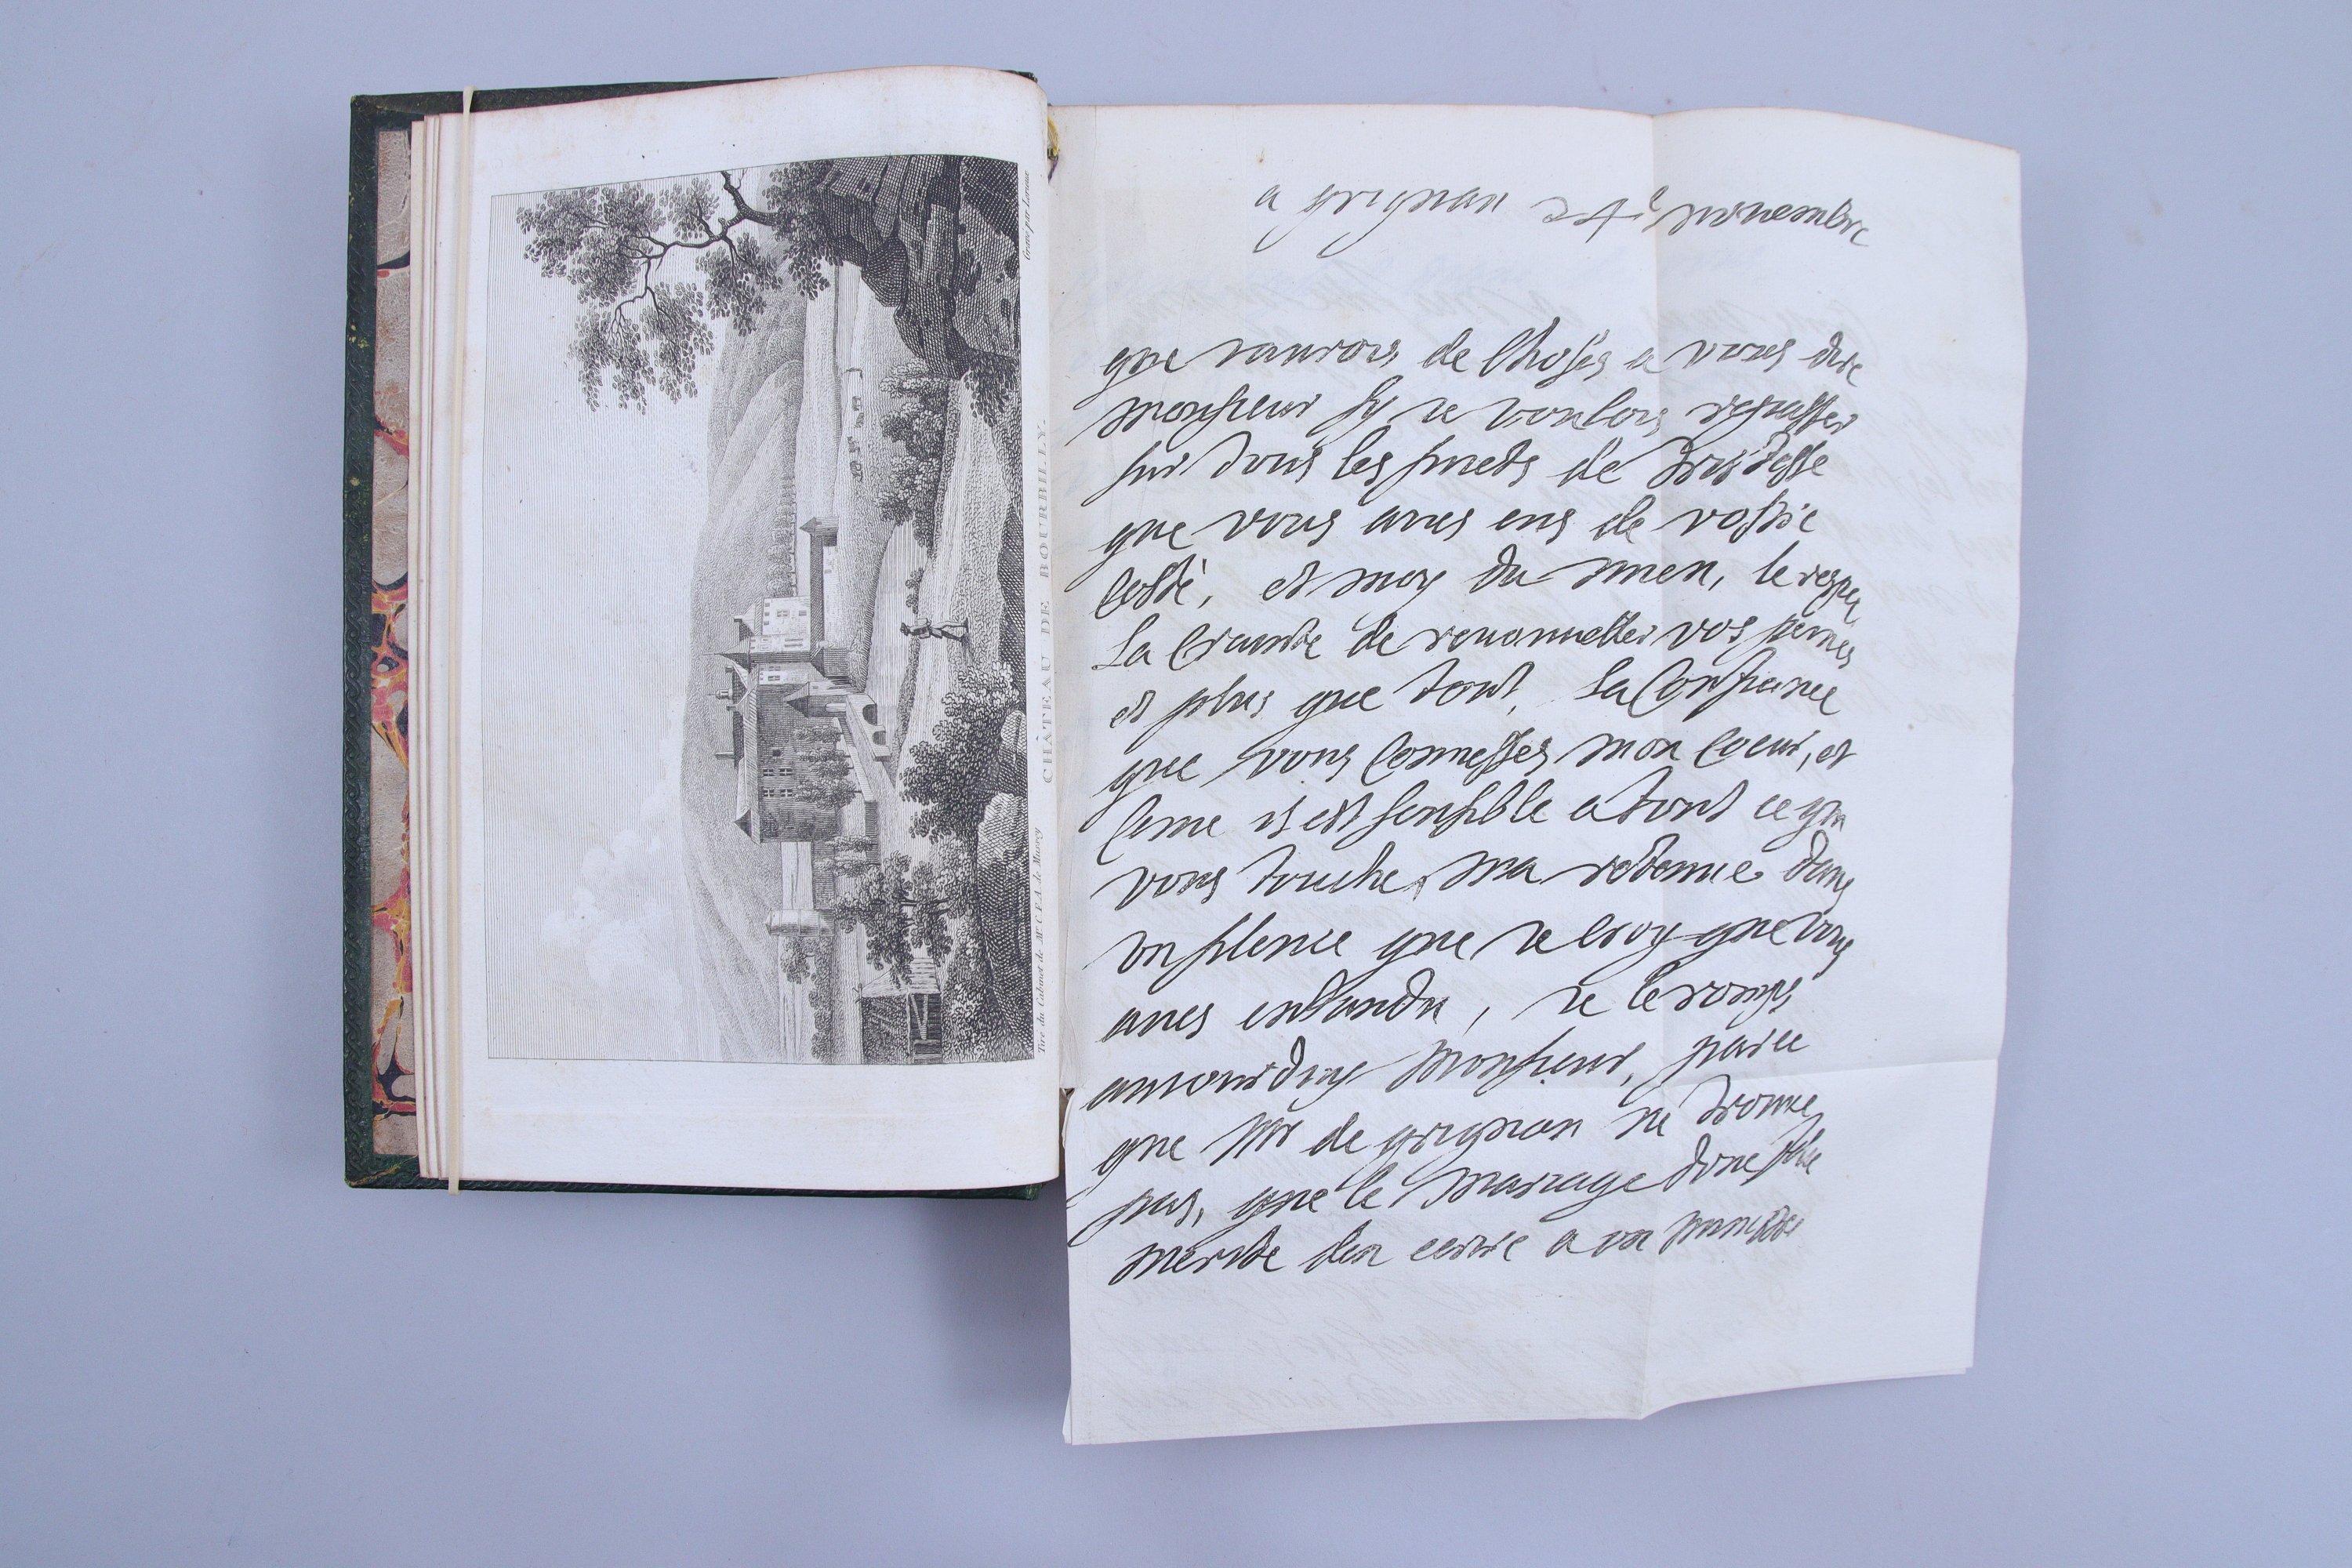 Gravé par Lorieux
CHÂTEAU DE BOURBILLY.
Tiré du Cabinet de
a grignan 24e novembre
que iaurois de choses a vous dire
monsieur sy ie voulois repasser
sur tous les suiets de tristesse
que vous aues eus de vostre
costé, et moy du mien, le respec
la crainte de renouueller vos peines
et plus que tout, la confiance
que vous connesses mon coeur, et
come il est sensible a tout ce qui
vous touche, ma retenue dans
vn silence que ie croy que vous
aues entandu, ie le romps
auiourdhuy monsieur, parce
que Mr de grignan ne trouue
pas, que le mariage dune fille
merite den ecrire a vn ministre